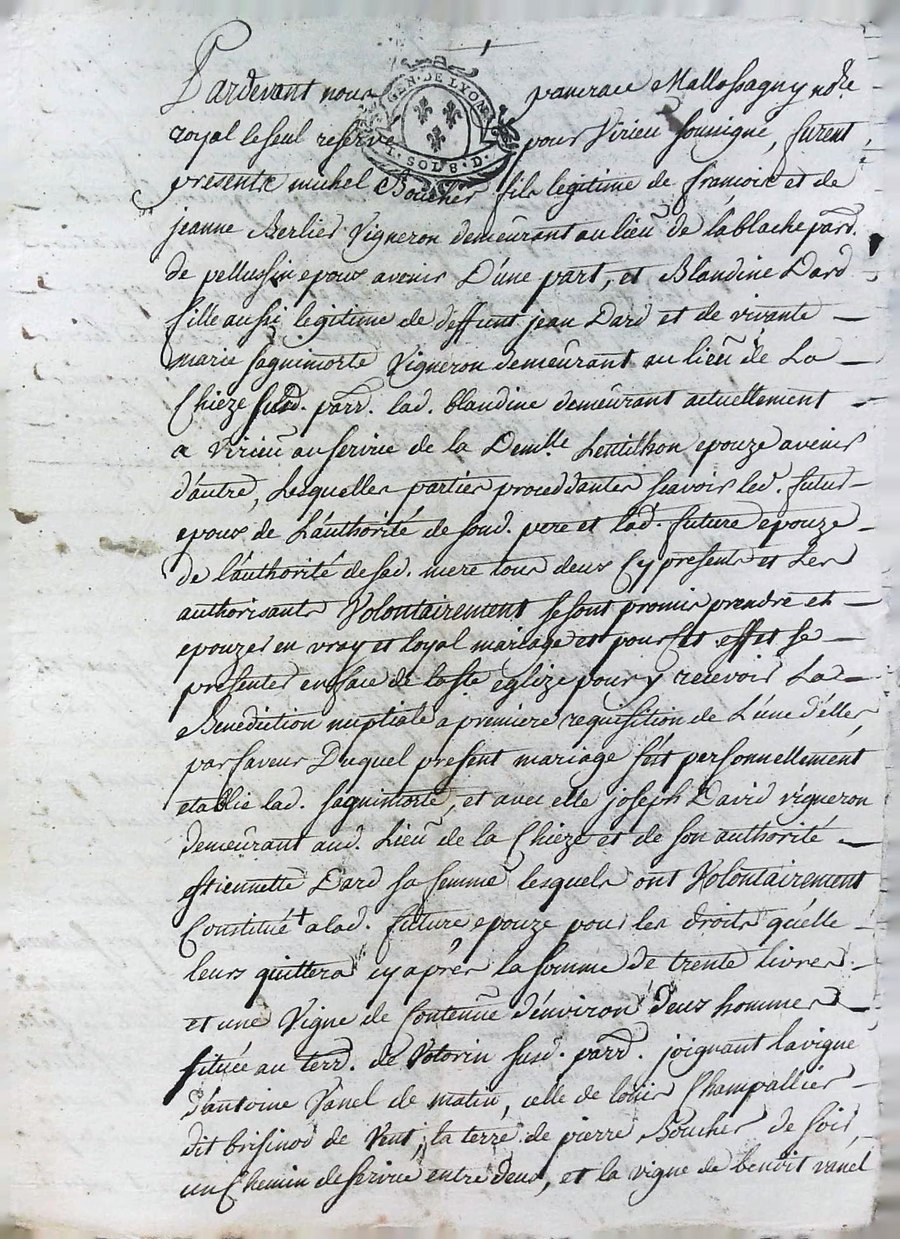 GEN·DE LYON
SOLS·D·
Pardevant nous pancrace Mallossagny nore
royal le seul reservé pour Virieu soussigné, furent
presents michel Boucher fils legitime de francois et de
jeanne Berlier Vigneron demeurant au lieu de lablache parr.
de pellussin epoux avenir D'une part, et Blandine Dard
fille aussi legitime de deffunt jean Dard et de vivante
marie saguimorte Vigneron demeurant au lieu de La
Chieze susd. parr. lad. blandine demeurant actuellement
a Virieu au service de la Demlle Lentilhon epouze avenir
d'autre, Lesquelles parties proceddantes scavoir led. futur
epoux de L'authorité de sond. pere et lad. future epouze
de l'authorité de sad. mere tous deux Cy presents et Les
authorisants Volontairement se sont promis prendre et
epouzer en vray et loyal mariage et pour cet effet se
presenter en face de la ste eglize pour y recevoir La
Benediction nuptiale a premiere requisition de L'une d'elles
par faveur Duquel present mariage s'est personnellement
etablie lad. saguimorte, et avec elle joseph David vigneron
demeurant aud. Lieu de la Chieze et de son authorité
Estiennette Dard sa femme lesquels ont Volontairement
Constitué + a lad. future epouze pour les droits qu'elle
leurs quittera cy après la somme de trente Livres
et une Vigne de Contenue d'environ deux hommes
située au terr. de Volorin susd. parr. joignant la vigne
d'antoine Vanel de matin, celle de louis Champallier
dit brisinod de Vent, la terre de pierre Boucher de soir
un Chemin de service entre deux, et la vigne de benoit vanel